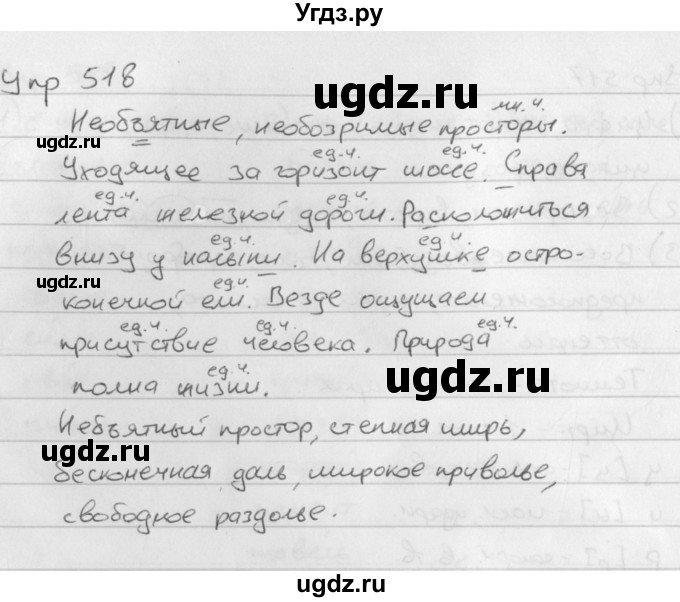 Угдз.ру
Упр 518
ugdz.ru
ugdz.ru
мн.ч.
Необъятные, необозримые просторы.
ед.ч. ед.ч.
Уходящее за горизонт шоссе. Справа
ед.ч. ед.ч.
лента железной дороги. Расположиться
ugdz.ru
ед.ч. ед.ч.
внизу у насыпи. На верхушке остро-
ugdz.ru
ед.ч.
конечной ели. Везде ощущаем
ед.ч. ед.ч. ед.ч.
присутствие человека. Природа
ед.ч.
полна жизни.
ugdz.ru
Небъятный простор, степная ширь,
ugdz.ru
бесконечная даль, широкое приволье,
свободное раздолье.
ugdz.ru
ugdz.ru